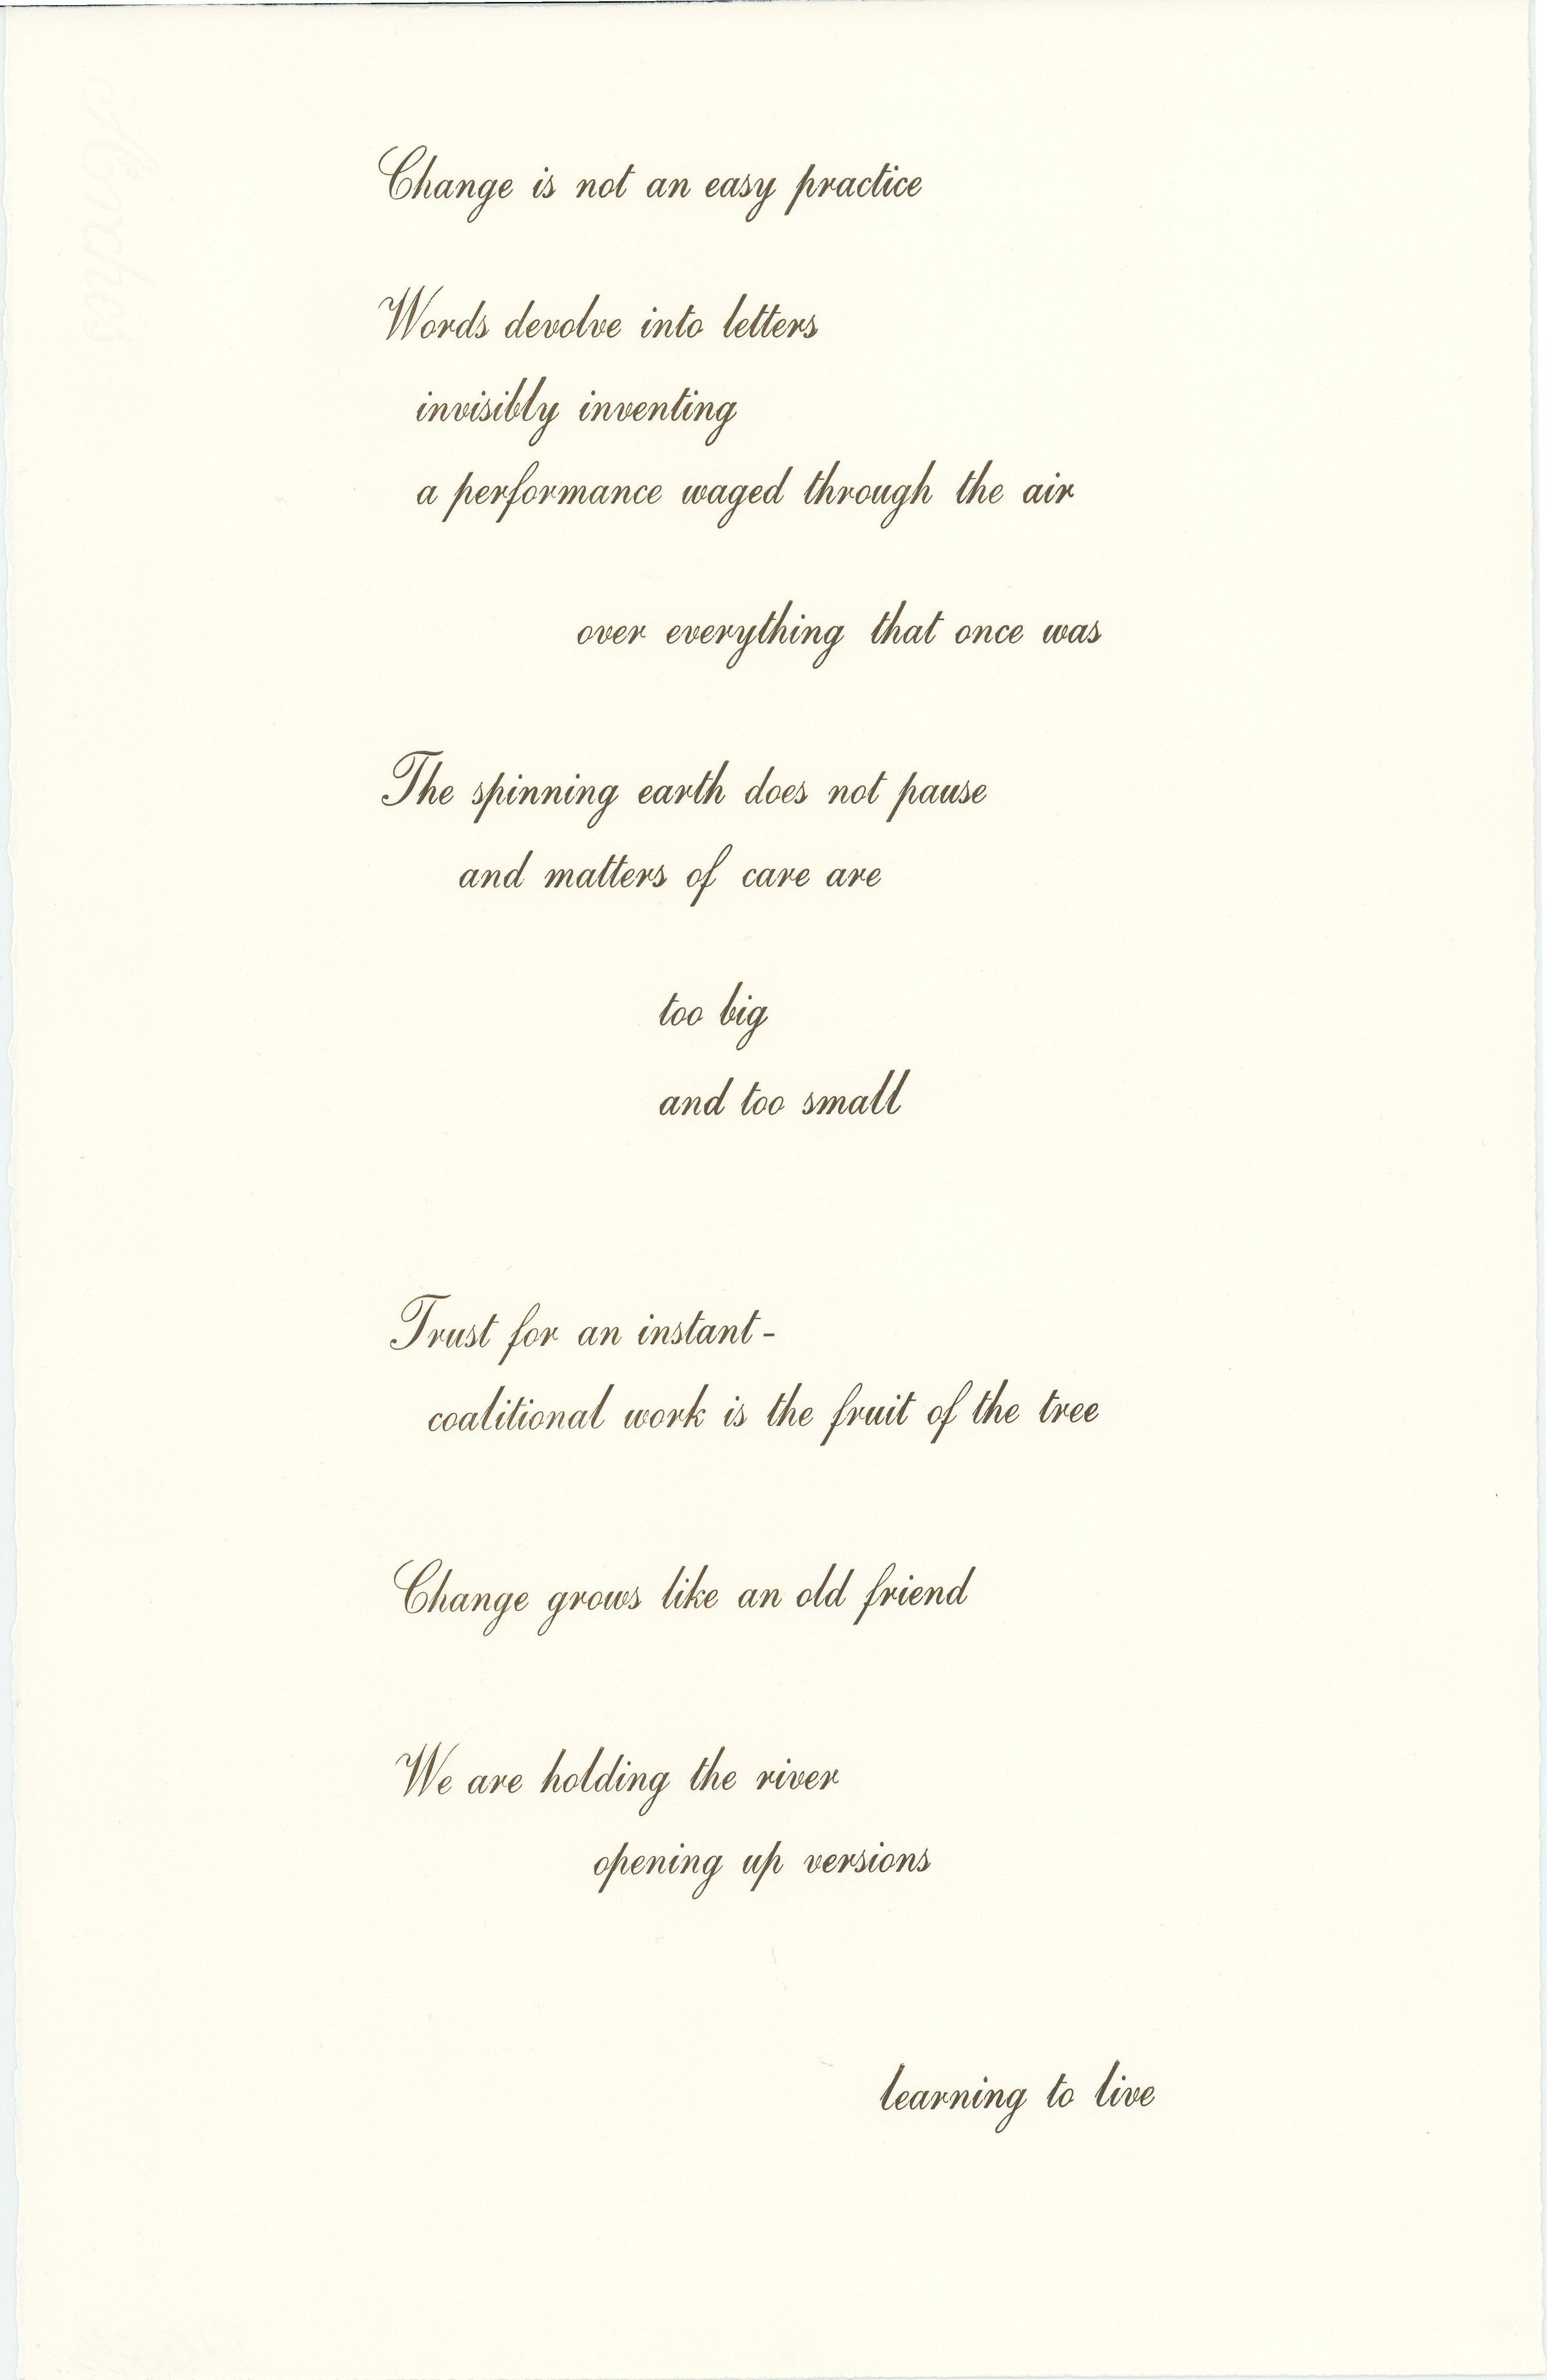 Change is not an easy practice
Words devolve into letters
invisibly inventing
a performance waged through the air
over everything that once was
The spinning earth does not pause
and matters of care are
too big
and too small
Trust for an instant-
coalitional work is the fruit of the tree
Change grows like an old friend
We are holding the river
opening up versions
learning to live
Arches